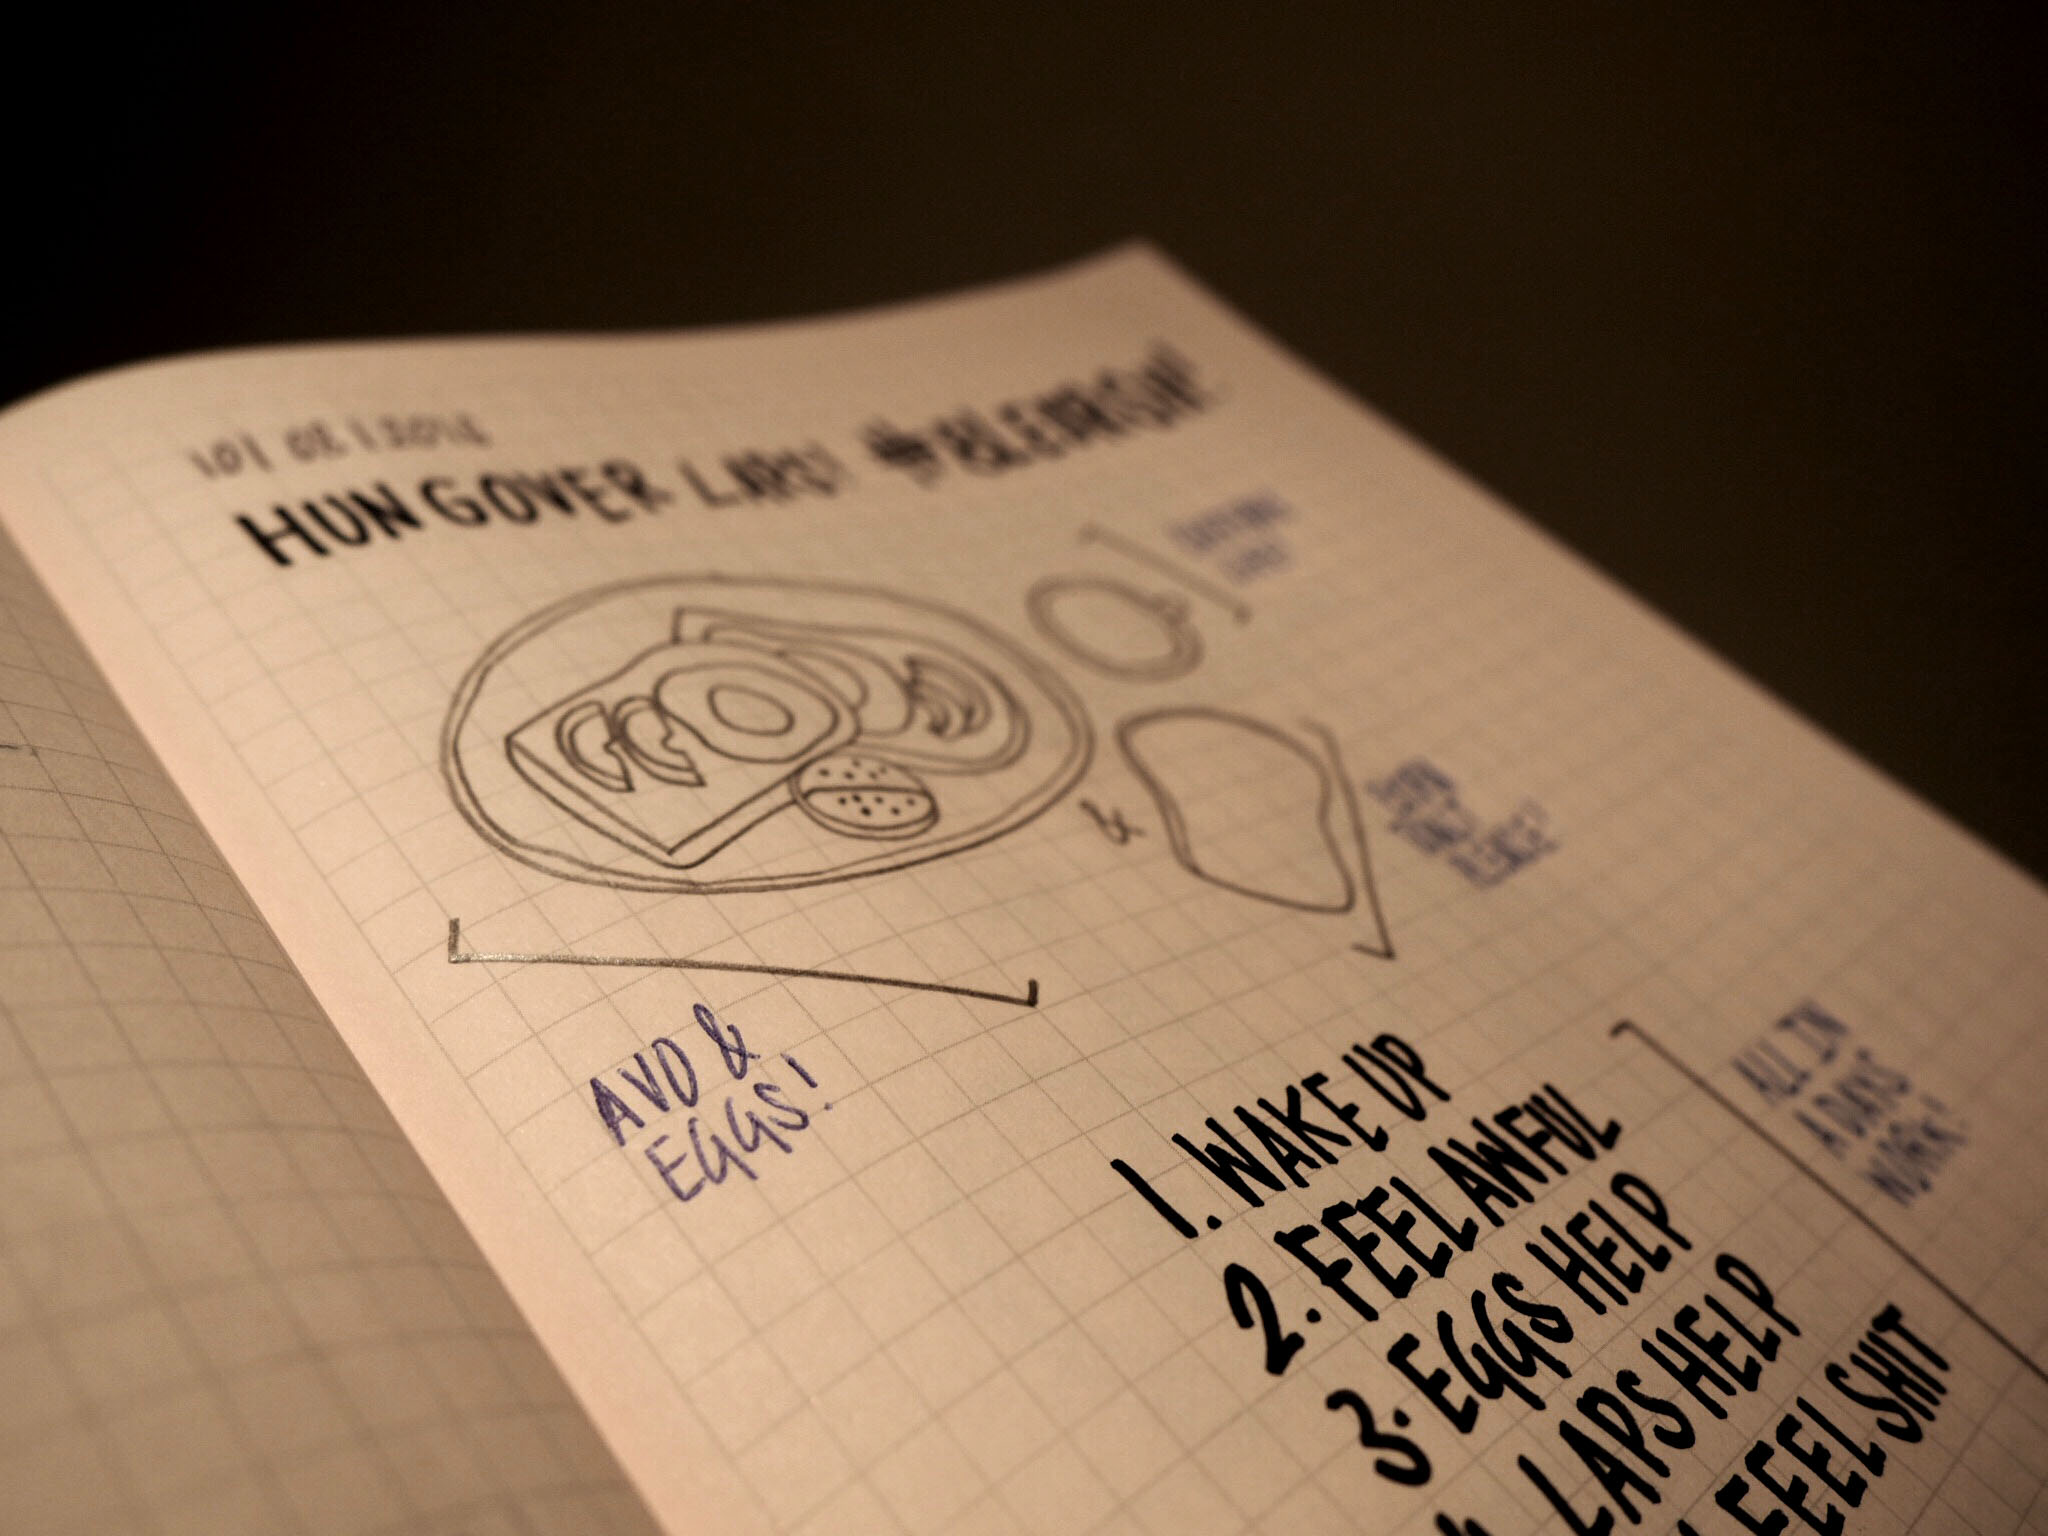 HUNGOVER LAPS!
&
AVO &
EGGS!
1. WAKE UP
2. FEEL AWFUL
3. EGGS HELP
LAPS HELP
FEEL SHIT
ALL IN
A DAYS
WORK!